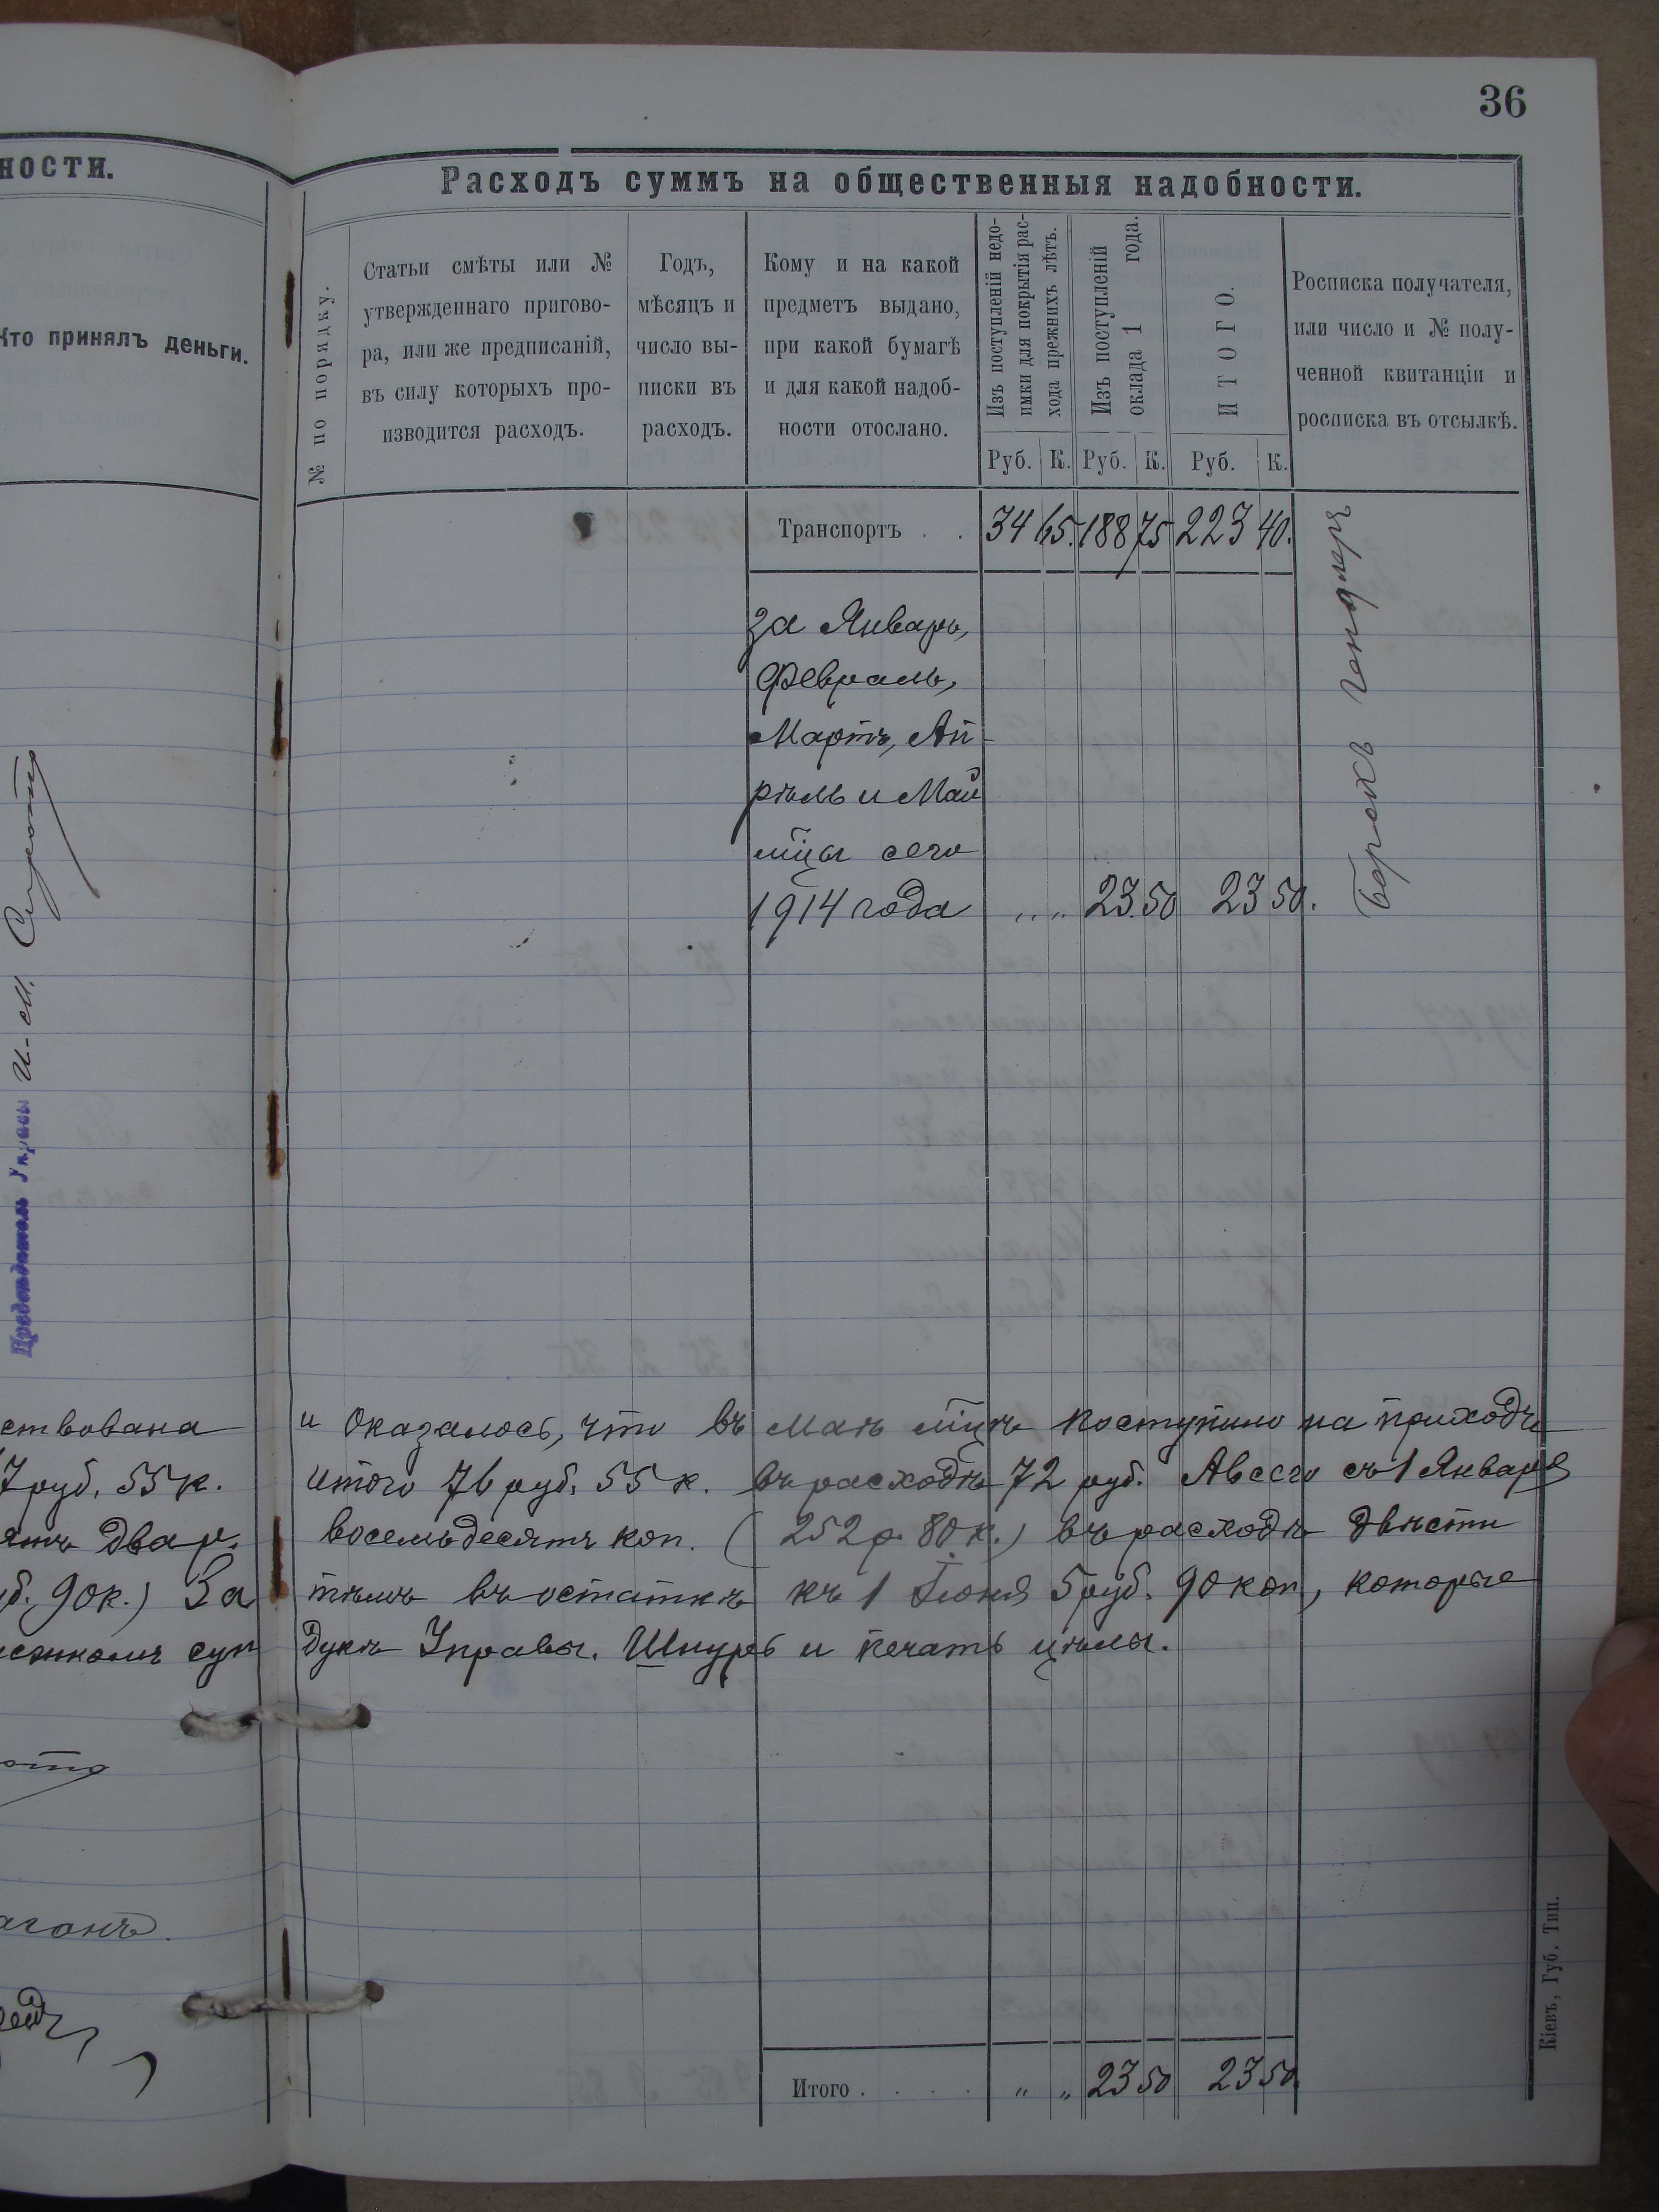 36
ности.
Кто принялъ деньги.
Предсѣдатель Управы И-М. Сирота
ствована
7 руб. 55 к.
ятъ два р.
уб. 90к.) За
отто
агонъ.
Расходъ суммъ на общественныя надобности.
№ по порядку.
Статьи смѣты или №
утвержденнаго пригово-
ра, или же предписаній,
въ силу которыхъ про-
изводится расходъ.
Годъ,
мѣсяцъ и
число вы-
писки въ
расходъ.
Кому и на какой
предметъ выдано,
при какой бумагѣ
и для какой надоб-
ности отослано.
Изъ поступленій недо-
имки для покрытія рас-
хода прежнихъ лѣтъ.
Изъ поступленій
оклада 1 года.
ИТОГО.
Росписка получателя,
или число и № полу-
ченной квитанціи и
росписка въ отсылкѣ.
Руб. К. Руб. К. Руб. К.
Транспортъ . . 34 65. 188 75 223 40.
за Январь,
Февраль,
Мартъ, Ап-
рѣль и Май
мцы сего
1914 года „ „ 23.50 23 50.
Борехъ Гендлеръ
и оказалось, что въ маѣ мцѣ поступило на приходъ
итого 76 руб. 55 к. въ расходъ 72 руб. А всего съ 1 Января
восемьдесятъ коп. (252 р. 80 к.) въ расходъ двѣсти
тѣмъ въ остаткѣ къ 1 Іюня 5 руб. 90 коп, которые
дукѣ Управы. Шнуръ и печать цѣлы.
Итого . . . . „ „ 23 50 23 50.
Кіевъ, Губ. Тип.